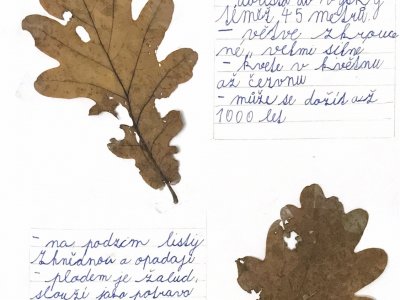 dorůstá do výšky
téměř 45 metrů
- větve zkrouce
né, velmi silné
- kvete v květnu
až červnu
- může se dožít až
1000 let
- na podzim listy
zhnědnou a opadají
- plodem je žalud,
slouží jako potrava